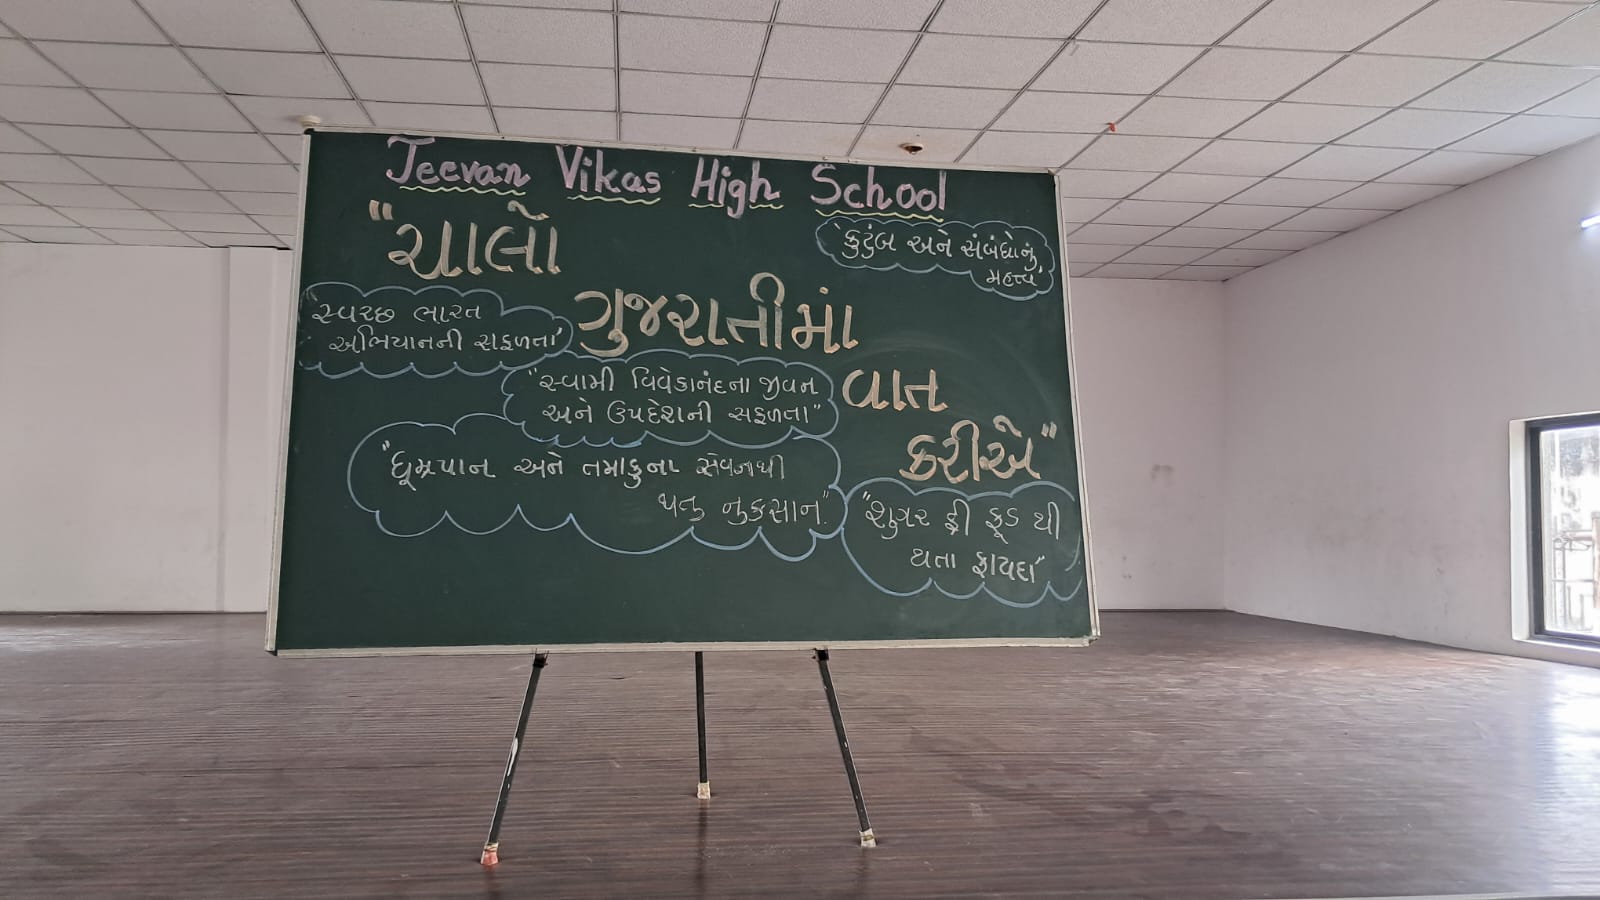 Jeevan Vikas High School
"ચાલો
ગુજરાતીમાં
વાત
કરીએ"
'કુટુંબ અને સંબંધોનું
મહત્ત્વ'
"સ્વચ્છ ભારત
અભિયાનની સફળતા"
"સ્વામી વિવેકાનંદના જીવન
અને ઉપદેશની સફળતા"
"ધૂમ્રપાન અને તમાકુના સેવનથી
થતુ નુકસાન"
"શુગર ફ્રી ફૂડ થી
થતા ફાયદા"